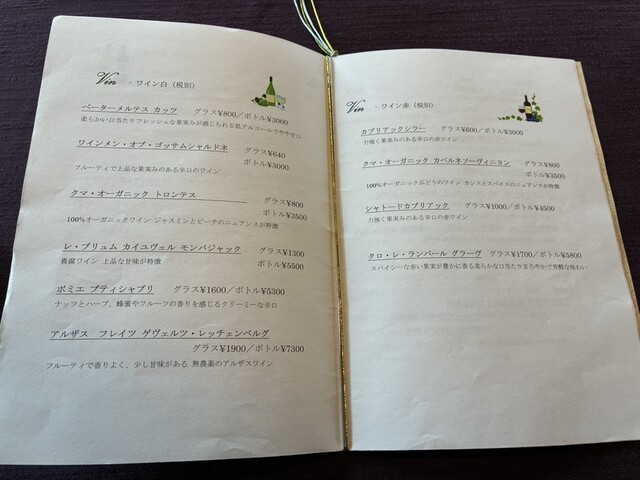 Vin - ワイン白（税別）
ペーターメルテス カッツ グラス¥800／ボトル¥3000
柔らかい口当たりフレッシュな果実みが感じられる低アルコールでやや甘口
ワインメン・オブ・ゴッサムシャルドネ グラス¥640
ボトル¥3000
フルーティで上品な果実みのある辛口のワイン
クマ・オーガニック トロンテス グラス¥800
ボトル¥3500
100%オーガニックワイン ジャスミンとピーチのニュアンスが特徴
レ・ブリュム カイユヴェル モンバジャック グラス¥1300
ボトル¥5500
貴腐ワイン 上品な甘味が特徴
ポミエ プティシャブリ グラス¥1600／ボトル¥5300
ナッツとハーブ、蜂蜜やフルーツの香りを感じるクリーミーな辛口
アルザス フレイツ ゲヴェルツ・レッチェンベルグ
グラス¥1900／ボトル¥7300
フルーティで香りよく、少し甘味がある 無農薬のアルザスワイン
Vin - ワイン赤（税別）
カブリアックシラー グラス¥600／ボトル¥3000
力強く果実みのある辛口の赤ワイン
クマ・オーガニック カベルネソーヴィニリン グラス¥800
ボトル¥3500
100%オーガニックぶどうのワイン カシスとスパイスのニュアンスが特徴
シャトードカブリアック グラス¥1000／ボトル¥4500
力強く果実みのある辛口の赤ワイン
クロ・レ・ランバール グラーヴ グラス¥1700／ボトル¥5800
スパイシーな赤い果実が豊かに香る柔らかな口当たりまろやかで芳醇な味わい